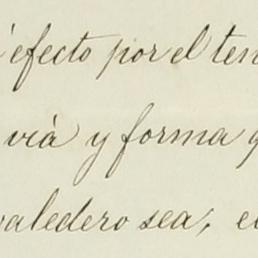 efecto por el ten
vià y forma q
valedero sea, e